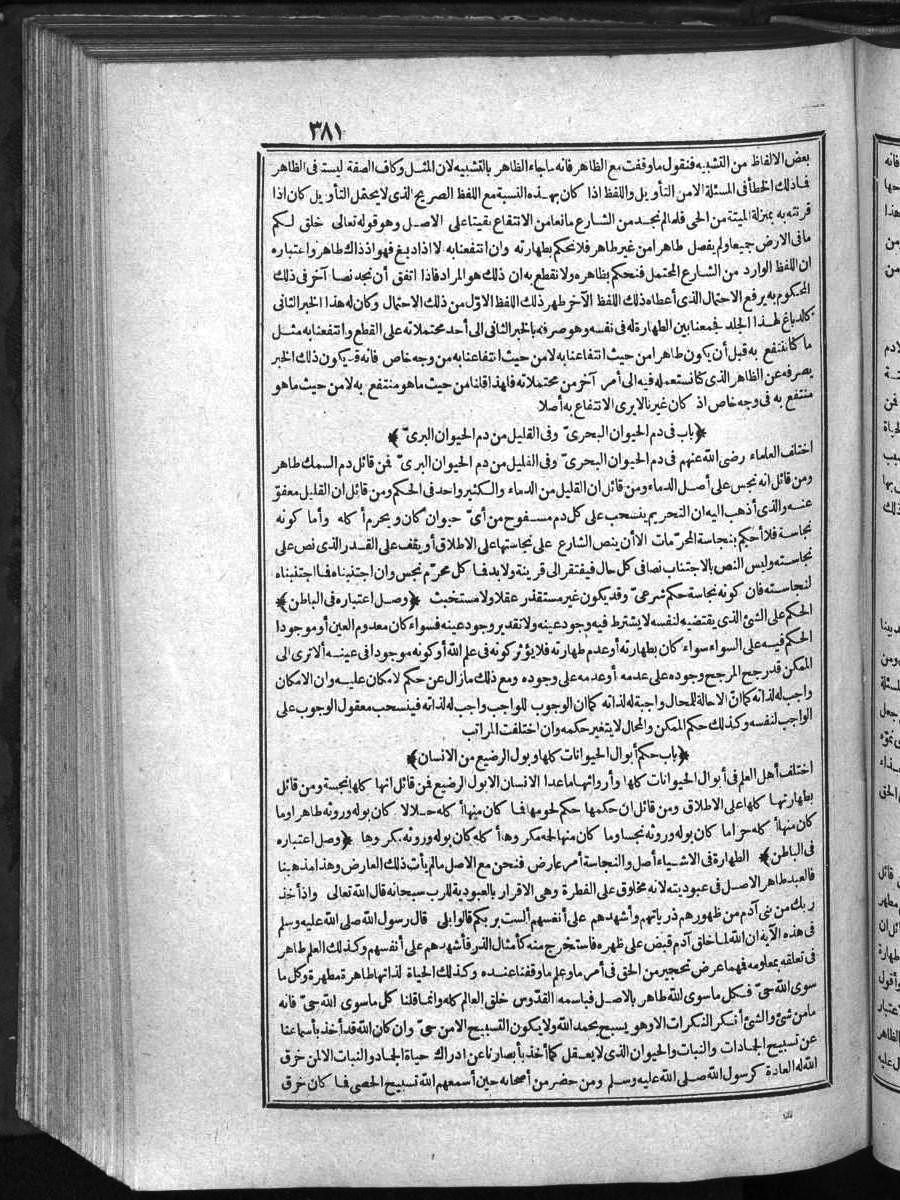 ٣٨١
بعض الالفاظ من التشبيه فنقول ما وقفت مع الظاهر فانه ما جاء الظاهر بالتشبيه لان المثل وكاف الصفة ليست فى الظاهر
فما ذلك الخطأ فى المسئلة الا من التأويل واللفظ اذا كان بهذه النسبة مع اللفظ الصريح الذى لا يحتمل التأويل كان اذا
قرنته به بمنزلة الميتة من الحى فلما لم نجد من الشارع مانعا من الانتفاع بقينا على الاصل وهو قوله تعالى خلق لكم
ما فى الارض جميعا ولم يفصل طاهرا من غير طاهر فلا نحكم بطهارته وان انتفعنا به الا اذا دبغ فهو اذ ذاك طاهر واعتباره
ان اللفظ الوارد من الشارع المحتمل فنحكم بظاهره ولا نقطع به ان ذلك هو المراد فاذا اتفق أن نجد نصا آخر فى ذلك
المحكوم به يرفع الاحتمال الذى أعطاه ذلك اللفظ الآخر طهر ذلك اللفظ الاول من ذلك الاحتمال وكان له هذا الخبر الثانى
كالدباغ لهذا الجلد فجمعنا بين الطهارة له فى نفسه وهو صرفه بالخبر الثانى الى أحد محتملاته على القطع وانتفعنا به مثل
ما كنا ننتفع به قبل أن يكون طاهرا من حيث انتفاعنا به لا من حيث انتفاعنا به من وجه خاص فانه قد يكون ذلك الخبر
يصرفه عن الظاهر الذى كنا نستعمله فيه الى أمر آخر من محتملاته فلهذا قلنا من حيث ما هو منتفع به لا من حيث ما هو
منتفع به فى وجه خاص اذ كان غيرنا لا يرى الانتفاع به أصلا
﴿باب فى دم الحيوان البحرىّ وفى القليل من دم الحيوان البرىّ﴾
اختلف العلماء رضى الله عنهم فى دم الحيوان البحرىّ وفى القليل من دم الحيوان البرىّ فمن قائل دم السمك طاهر
ومن قائل انه نجس على أصل الدماء ومن قائل ان القليل من الدماء والكثير واحد فى الحكم ومن قائل ان القليل معفوّ
عنه والذى أذهب اليه ان التحريم ينسحب على كل دم مسفوح من أىّ حيوان كان ويحرم أكله وأما كونه
نجاسة فلا أحكم بنجاسة المحرّمات الا أن ينص الشارع على نجاستها على الاطلاق أو يقف على القدر الذى نص على
نجاسته وليس النص بالاجتناب نصا فى كل حال فيفتقر الى قرينة ولا بد فما كل محرّم نجس وان اجتنبناه فما اجتنبناه
لنجاسته فان كونه نجاسة حكم شرعىّ وقد يكون غير مستقذر عقلا ولا مستخبث ﴿وصل اعتباره فى الباطن﴾
الحكم على الشئ الذى يقتضيه لنفسه لا يشترط فيه وجود عينه ولا تقدير وجود عينه فسواء كان معدوم العين أو موجودا
الحكم فيه على السواء سواء كان بطهارته أو عدم طهارته فلا يؤثر كونه فى علم الله أو كونه موجودا فى عينه ألا ترى الى
الممكن قد رجح المرجح وجوده على عدمه أو عدمه على وجوده ومع ذلك ما زال عن حكم الامكان عليه وان الامكان
واجب له لذاته كما انّ الاحالة للمحال واجبة له لذاته كما ان الوجوب للواجب واجب له لذاته فينسحب معقول الوجوب على
الواجب لنفسه وكذلك حكم الممكن والمحال لا يتغير حكمه وان اختلفت المراتب
﴿باب حكم أبوال الحيوانات كلها وبول الرضيع من الانسان﴾
اختلف أهل العلم فى أبوال الحيوانات كلها وأرواثها ما عدا الانسان الا بول الرضيع فمن قائل انها كلها نجسة ومن قائل
بطهارتها كلها على الاطلاق ومن قائل ان حكمها حكم لحومها فما كان منها أكله حلالا كان بوله وروثه طاهرا وما
كان منها أكله حراما كان بوله وروثه نجسا وما كان منها لحمه مكروها أكله كان بوله وروثه مكروها ﴿وصل اعتباره
فى الباطن﴾ الطهارة فى الاشياء أصل والنجاسة أمر عارض فنحن مع الاصل ما لم يأت ذلك العارض وهذا مذهبنا
فالعبد طاهر الاصل فى عبوديته لانه مخلوق على الفطرة وهى الاقرار بالعبودية للرب سبحانه قال الله تعالى واذ أخذ
ربك من بنى آدم من ظهورهم ذرياتهم وأشهدهم على أنفسهم ألست بربكم قالوا بلى قال رسول الله صلى الله عليه وسلم
فى هذه الآية ان الله لما خلق آدم قبض على ظهره فاستخرج منه كأمثال الذر فأشهدهم على أنفسهم وكذلك العلم طاهر
فى تعلقه بمعلومه فهما عرض تحجير من الحق فى أمر ما وعلم ما وقفنا عنده وكذلك الحياة لذاتها طاهرة مطهرة وكل ما
سوى الله حىّ فكل ما سوى الله طاهر بالاصل فباسمه القدّوس خلق العالم كله وانما قلنا كل ما سوى الله حىّ فانه
ما من شئ والشئ أنكر النكرات الا وهو يسبح بحمد الله ولا يكون التسبيح الا من حىّ وان كان الله قد أخذ بأسماعنا
عن تسبيح الجمادات والنبات والحيوان الذى لا يعقل كما أخذ بأبصارنا عن ادراك حياة الجماد والنبات الا لمن خرق
الله له العادة كرسول الله صلى الله عليه وسلم ومن حضر من أصحابه حين أسمعهم الله تسبيح الحصى فما كان خرق